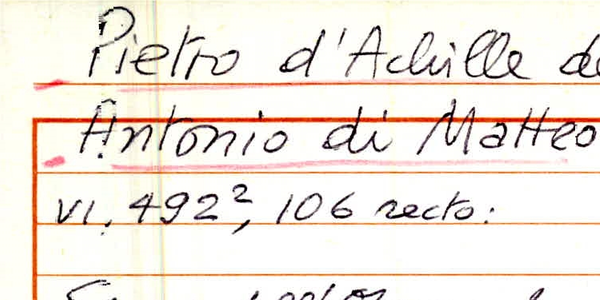 Pietro d'Achille de
Antonio di Matteo
VI, 492², 106 recto: